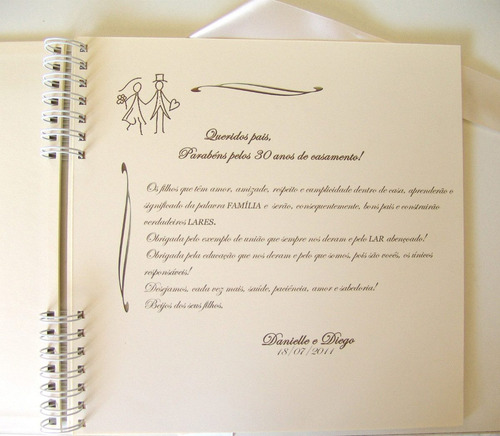 Queridos pais,
Parabéns pelos 30 anos de casamento!
Os filhos que têm amor, amizade, respeito e cumplicidade dentro de casa, aprenderão o
significado da palavra FAMÍLIA e serão, consequentemente, bons pais e construirão
verdadeiros LARES.
Obrigada pelo exemplo de união que sempre nos deram e pelo LAR abençoado!
Obrigada pela educação que nos deram e pelo que somos, pois são vocês, os únicos
responsáveis!
Desejamos, cada vez mais, saúde, paciência, amor e sabedoria!
Beijos dos seus filhos.
Danielle e Diego
18/07/2011